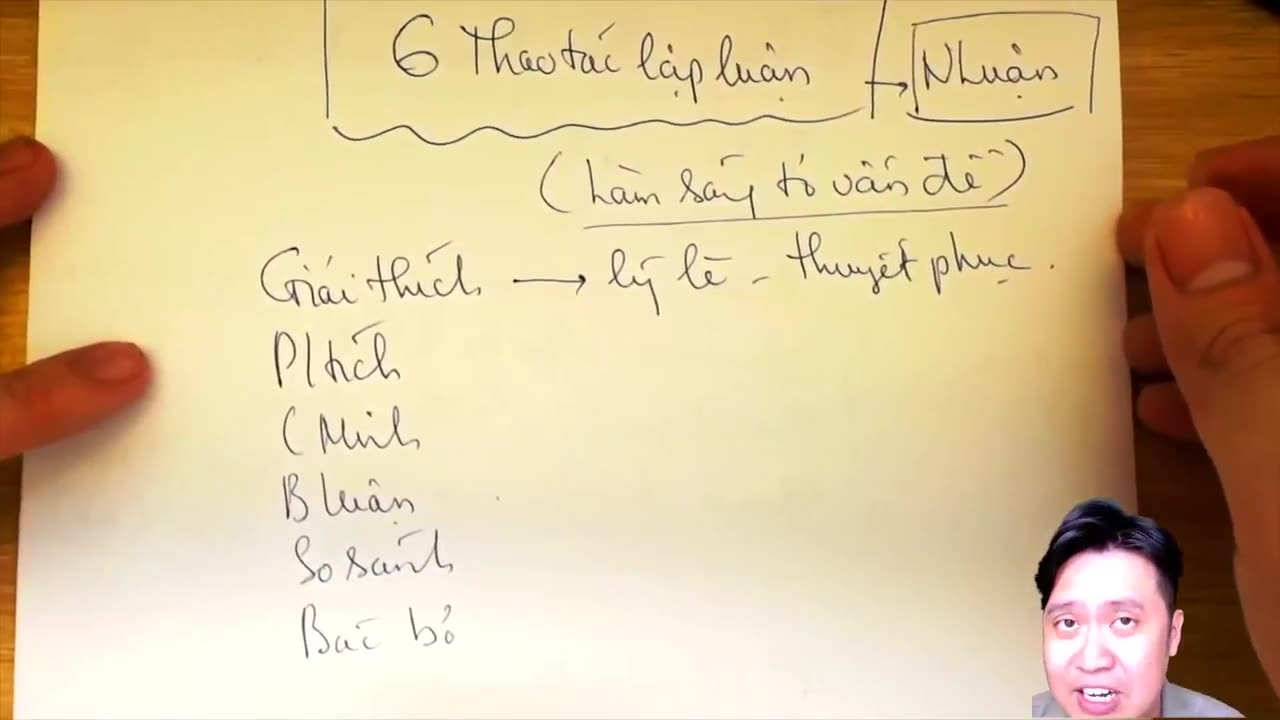 6 Thao tác lập luận → N Luận
(Làm sáng tỏ vấn đề)
Giải thích → lý lẽ - thuyết phục.
P/tích
C Minh
B luận
So sánh
Bác bỏ